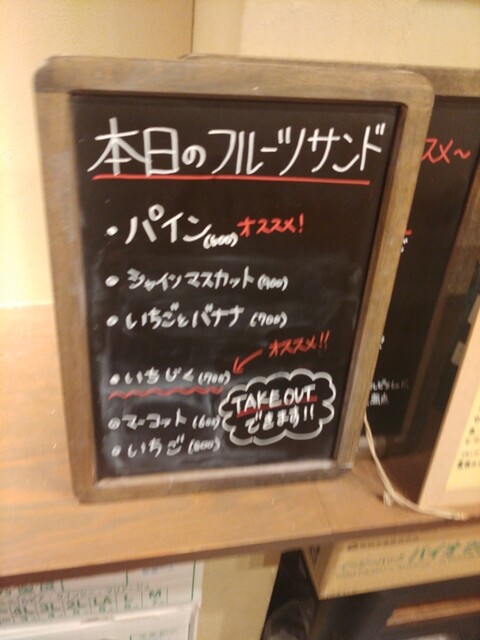 本日のフルーツサンド
・パイン(600) オススメ!
・シャインマスカット
・いちごとバナナ (700)
オススメ!!
・いちじく(700)
・マーコット(600)
・いちご
TAKE OUT
できます!!
スメ〜